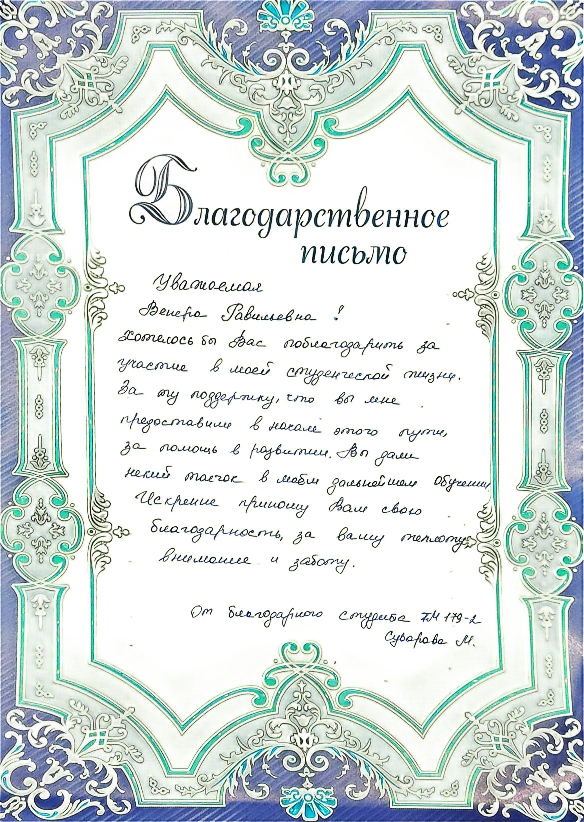 Благодарственное
письмо
Уважаемая
Венера Равильевна !
Хотелось бы Вас поблагодарить за
участие в моей студенческой жизни.
За ту поддержку, что вы мне
предоставили в начале этого пути,
за помощь в развитии. Вы дали
некий толчок в моём дальнейшем обучении
Искренне приношу Вам свою
благодарность, за вашу теплоту,
внимание и заботу.
От благодарного студента 179-2
Суварова М.